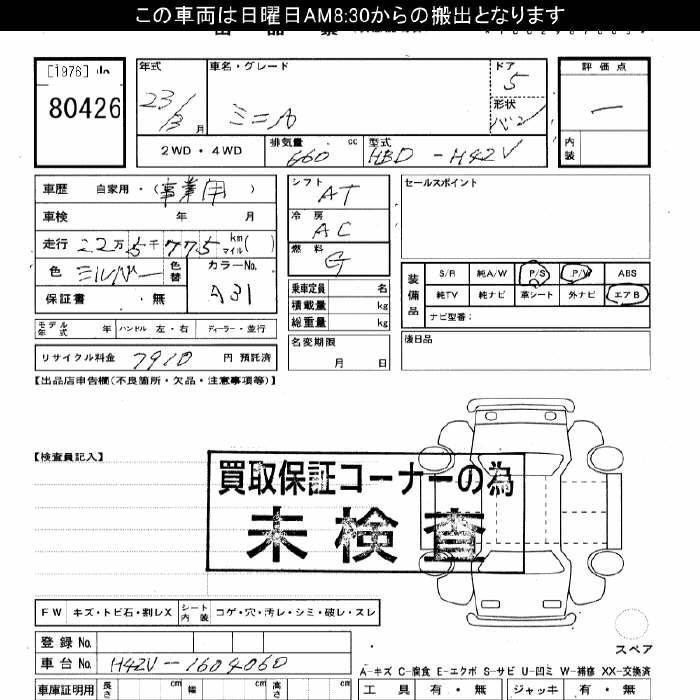 この車両は日曜日AM8:30からの搬出となります
[1976]
80426
年式 車名・グレード ドア 評価点
23/3 月 ミニカ 5
形状 バン
2WD・4WD 排気量 660 cc 型式 HBD-H42V 内装
車歴 自家用・(事業用)
車検 年 月
走行 22万5千775 km マイル( )
色 シルバー 色替 カラーNo. A31
保証書 ・無
モデル年式 年 ハンドル 左・右 ディーラー・並行
リサイクル料金 7910 円 預託済
シフト AT
冷房 AC
燃料 G
乗車定員 名
積載量 kg
総重量 kg
名変期限 月 日
セールスポイント
装備品 S/R 純A/W P/S P/W ABS
純TV 純ナビ 革シート 外ナビ エアB
ナビ型番:
後日品
【出品店申告欄(不良箇所・欠品・注意事項等)】
【検査員記入】
買取保証コーナーの為
未検査
FW キズ・トビ石・割レX シート内装 コゲ・穴・汚レ・シミ・破レ・スレ
登録No.
車台No. H42V-1604060
スペア
A-キズ C-腐食 E-エクボ S-サビ U-凹ミ W-補修 XX-交換済
車庫証明用 長さ cm 幅 cm 高さ cm 工具 有・無 ジャッキ 有・無